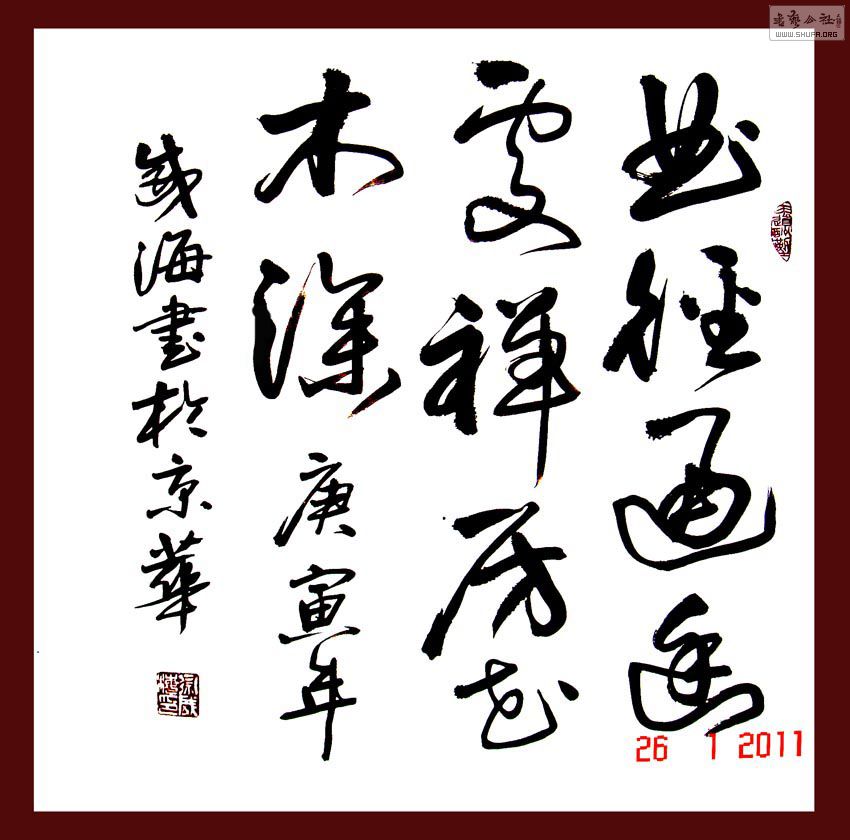 曲徑通幽
處禪房花
木深 庚寅年
威海書於京華
26 1 2011
書藝公社
WWW.SHUFA.ORG